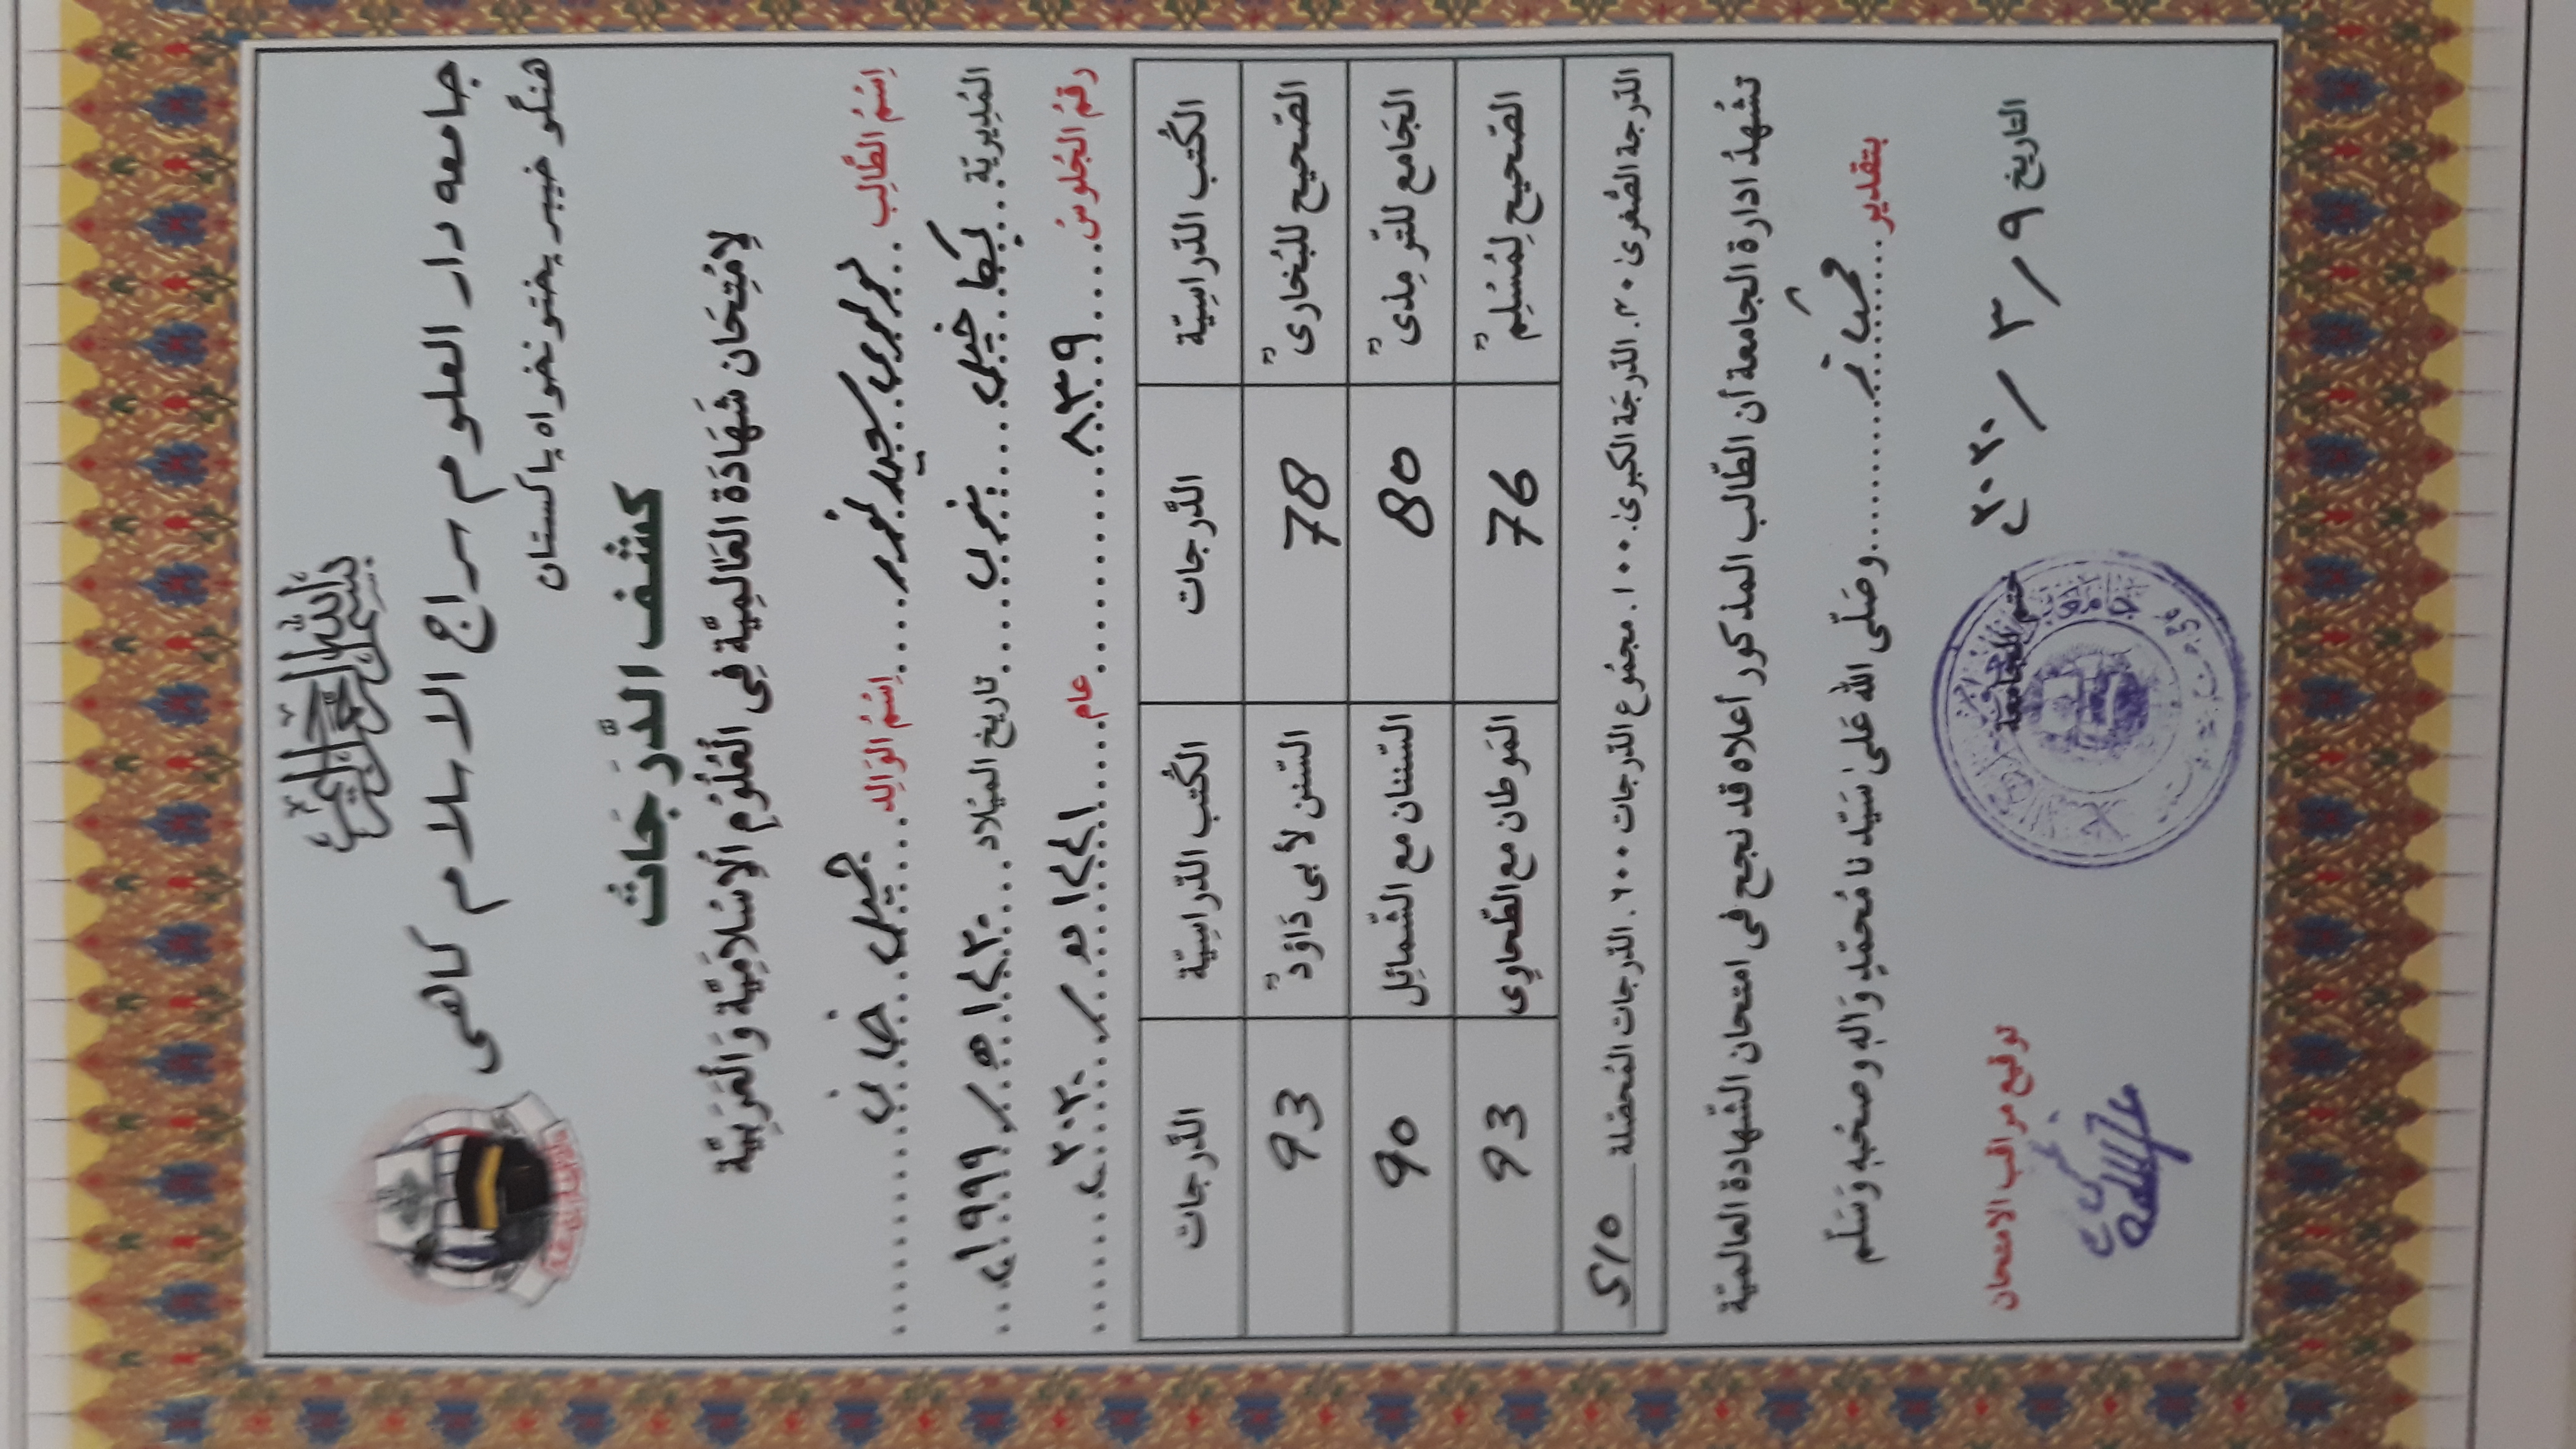 بِسْمِ اللهِ الرَّحْمٰنِ الرَّحِيْمِ
جامعه دار العلوم سراج الاسلام كاهى
هنگو خيبر پختونخواه پاكستان
كشف الدَّرَجَاتُ
لِامْتِحَان شَهَادَة العَالَمِيَّة فِى الْعُلُوْمِ الْاِسْلَامِيَّة وَالْعَرَبِيَّة
اِسْمُ الطَّالِب ..مولوى سعيد نور.... اِسْمُ الوَالِد .... جميل خان
المُدِيرِيَّة .. خيل بنوں .... تاريخ الميْلاد .... ١٤٢٠ھ / ١٩٩٩ء
رقمُ الجُلُوسُ .... ٨٣٩ .... عام .... ١٤٤١ھ / ٢٠٢٠ء
الكُتب الدّراسِيَّة الدَّرجات الكُتب الدّراسِيَّة الدَّرجات
الصَحيح للبُخارىؒ 78 السّنن لأبى دَاوٗدؒ 93
الجَامع للتّرمِذىؒ 80 السّننان مع الشّمائل 90
الصَحيح لِمُسْلِمؒ 76 المَوطان مع الطّحاوِى 93
الدّرجة الصُّغرىٰ ٣٠. الدّرجَة الكبرىٰ ١٠٠. مجمُوع الدّرجات ٦٠٠. الدّرجات المُحصّلة 510
تشْهدُ ادارة الجامعة أن الطّالب المذكور أعلاه قد نجح فى امتحان الشّهادة العالميّة
بتقدير .... ممتاز .... وصَلّى الله عَلىٰ سَيّدنا مُحمّدٍ وَاٰلِهٖ وصحْبِهٖ وَسَلّم
التاريخ ٩ / ٣ / ٢٠٢٠ء ختم الجامعة توقيع مراقب الامتحان